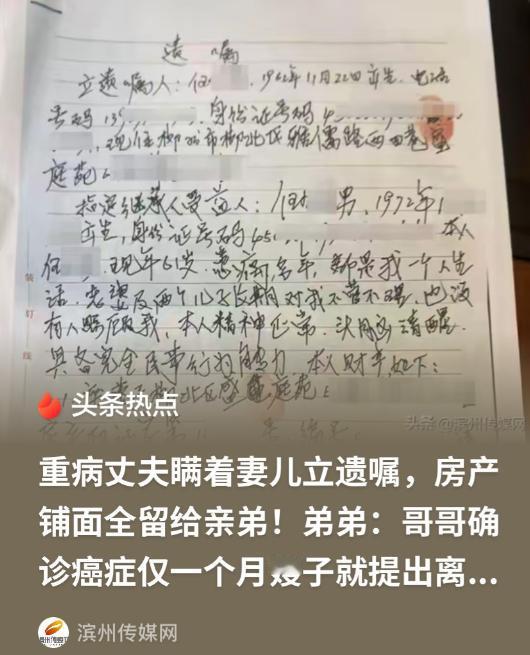 遗嘱
立遗嘱人：任 1962年11月22日出生，电话
号码135 身份证号码4
现住柳州市柳北区雅儒路西四巷
庭苑
指定继承人受益人：任 男，1972年1
出生，身份证号码451 本人
任 现年61岁，患病多年，都是我一个人生
活，老婆及两个儿子长期对我不管不理，也没
有人照顾我，本人精神正常，头脑清醒，
具备完全民事行为能力 本人财产如下：
庭苑
装订线
头条热点
头条@滨州传媒网
重病丈夫瞒着妻儿立遗嘱，房产
铺面全留给亲弟！弟弟：哥哥确
诊癌症仅一个月嫂子就提出离...
滨州传媒网